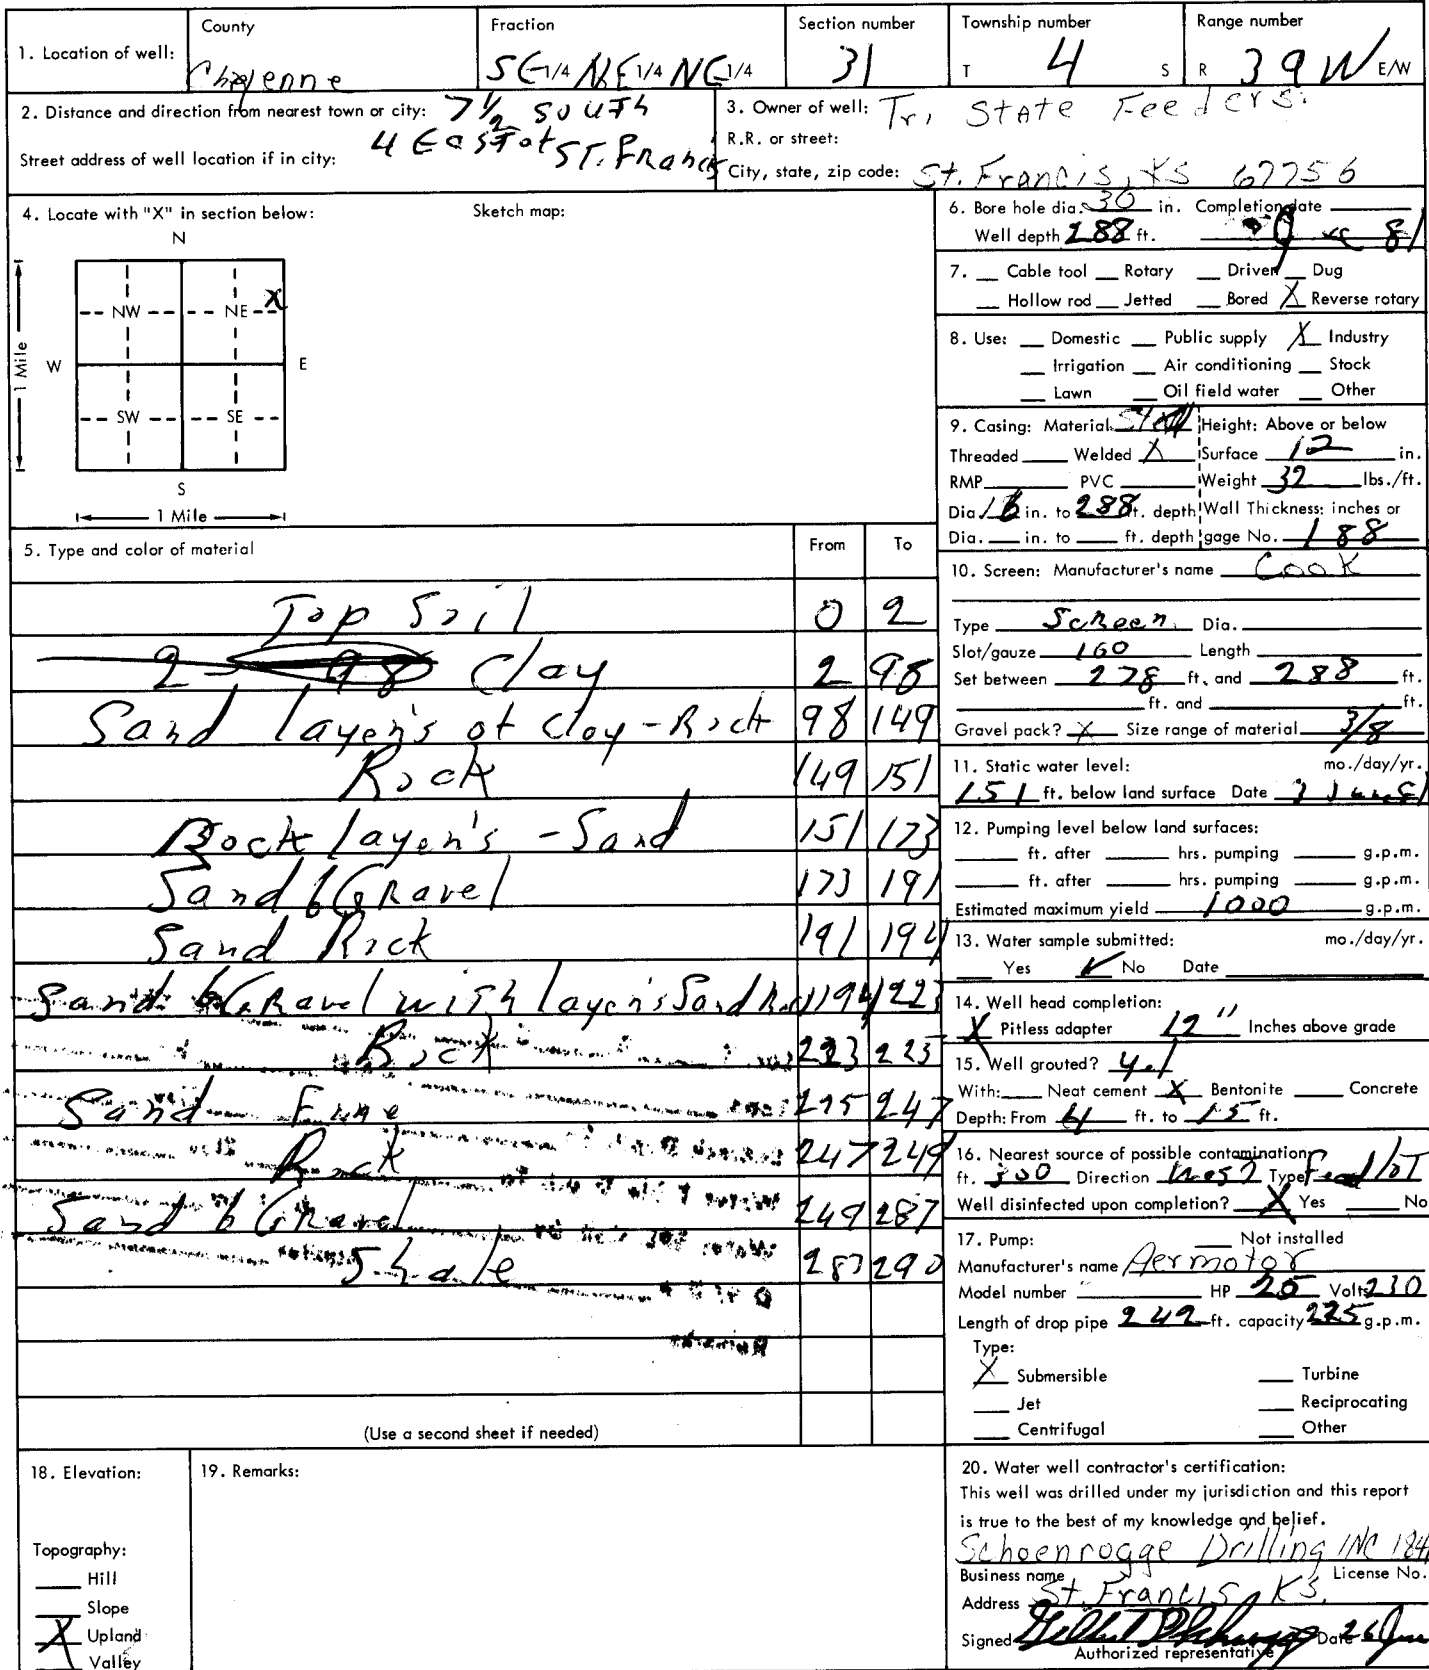 1. Location of well: County Cheyenne Fraction SE 1/4 NE 1/4 NE 1/4 Section number 31 Township number T 4 S Range number R 39 W E/W
2. Distance and direction from nearest town or city: 7 1/2 South
4 East of St. Francis
Street address of well location if in city:
3. Owner of well: Tri State Feeders.
R.R. or street:
City, state, zip code: St. Francis, KS 67756
4. Locate with "X" in section below: Sketch map:
N
X
NW NE
W E
SW SE
S
1 Mile
1 Mile
5. Type and color of material From To
Top Soil 0 2
2 - 98 Clay 2 98
Sand layer's of Clay - Rock 98 149
Rock 149 151
Rock layer's - Sand 151 173
Sand & Gravel 173 191
Sand Rock 191 194
Sand & Gravel with layer's Sand Rock 194 223
Rock 223 225
Sand Fine 225 247
Rock 247 249
Sand & Gravel 249 287
Shale 287 290
(Use a second sheet if needed)
6. Bore hole dia. 30 in. Completion date
Well depth 288 ft. 81
7. Cable tool Rotary Driven Dug
Hollow rod Jetted Bored X Reverse rotary
8. Use: Domestic Public supply X Industry
Irrigation Air conditioning Stock
Lawn Oil field water Other
9. Casing: Material Steel Height: Above or below
Threaded Welded X Surface 12 in.
RMP PVC Weight 32 lbs./ft.
Dia 16 in. to 288 ft. depth Wall Thickness: inches or
Dia. in. to ft. depth gage No. 188
10. Screen: Manufacturer's name Cook
Type Screen Dia.
Slot/gauze 160 Length
Set between 278 ft. and 288 ft.
ft. and ft.
Gravel pack? X Size range of material 3/8
11. Static water level: mo./day/yr.
151 ft. below land surface Date 3 Jun 81
12. Pumping level below land surfaces:
ft. after hrs. pumping g.p.m.
ft. after hrs. pumping g.p.m.
Estimated maximum yield 1000 g.p.m.
13. Water sample submitted: mo./day/yr.
Yes ✓ No Date
14. Well head completion:
X Pitless adapter 12" Inches above grade
15. Well grouted? yes
With: Neat cement X Bentonite Concrete
Depth: From 4 ft. to 15 ft.
16. Nearest source of possible contamination
ft. 300 Direction West Type Feed lot
Well disinfected upon completion? X Yes No
17. Pump: Not installed
Manufacturer's name Aermotor
Model number HP 25 Volts 230
Length of drop pipe 242 ft. capacity 225 g.p.m.
Type:
X Submersible Turbine
Jet Reciprocating
Centrifugal Other
18. Elevation:
Topography:
Hill
Slope
X Upland
Valley
19. Remarks:
20. Water well contractor's certification:
This well was drilled under my jurisdiction and this report
is true to the best of my knowledge and belief.
Schoenrogge Drilling INC 184
Business name License No.
Address St. Francis KS.
Signed Date 26 June
Authorized representative